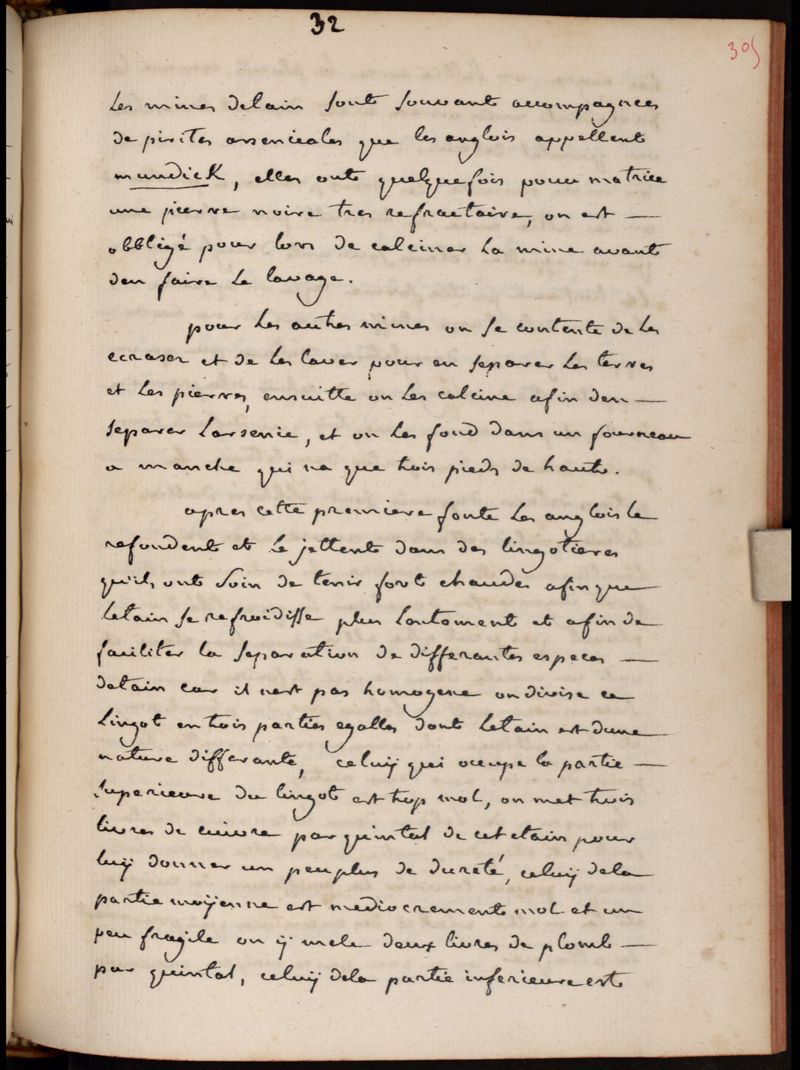 32
305
Les mines detain sont souvants accompagnees
de pirites arsenicales que les anglois appellent
mundick, elles ont quelquefois pour matrice
une pierre noire tres refractaire, on est —
obbligé pour lors de calciner la mine avant
den faire le lavage.
pour les autres mines on se contente de les
ecraser et de les laver pour en separer les terres
et les pierres, ensuitte on les calcine afin den —
separer larsenic, et on les fond dans un fourneau
a manche qui na que trois pieds de haut.
apres cette premiere fonte les anglois le
refondent et le jettent dans des lingotieres
quils ont soin de tenir fort chaudes afin que
letain se refroidisse plus lentement et afin de
faciliter la separation de differantes especes —
detain car il nest pas homogene on divise ce
lingot en trois parties egalles dont letain est dune
nature differante, celuy qui occupe la partie —
superieure du lingot est trop mol, on met trois
livres de cuivre par quintal de cet etain pour
luy donner un peu plus de dureté, celuy dela
partie moyenne est mediocrement mol et un
peu fragile on y mele deux livres de plomb —
par quintal, celuy dela partie inferieure est